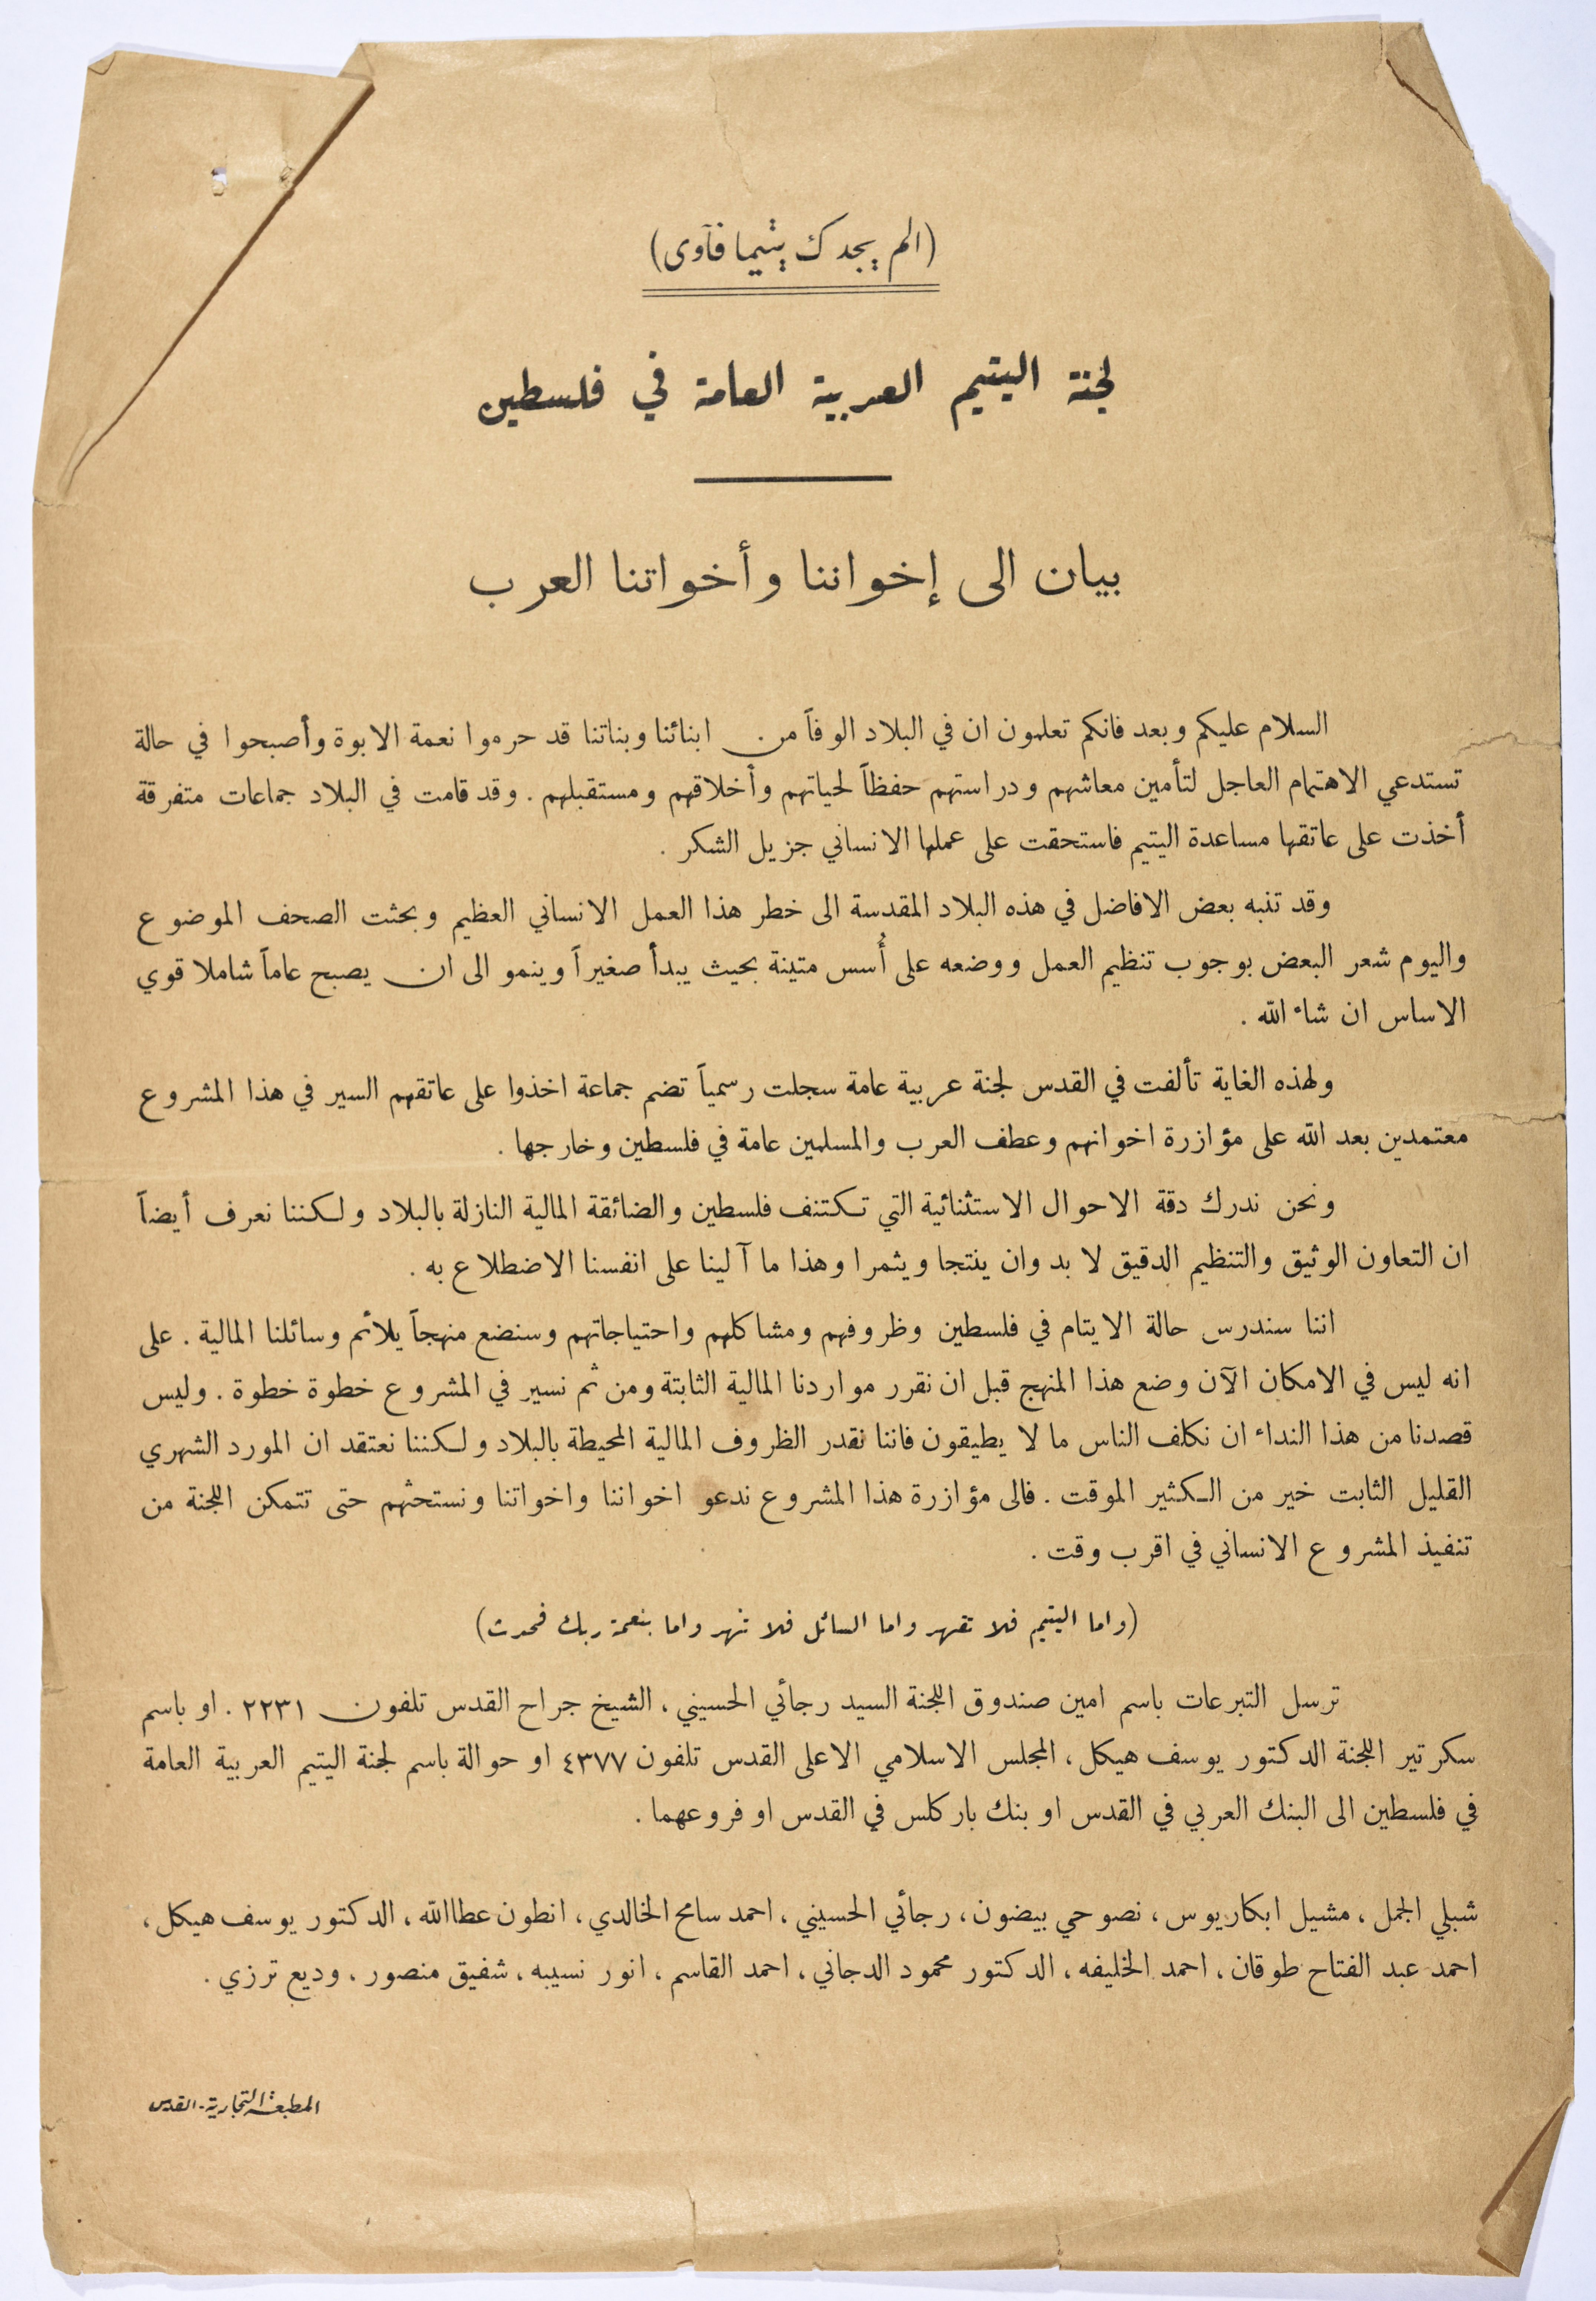 (الم يجدك يتيما فآوى)
لجنة اليتيم العربية العامة في فلسطين
بيان الى إخواننا وأخواتنا العرب
السلام عليكم وبعد فانكم تعلمون ان في البلاد الوفاً من ابنائنا وبناتنا قد حرموا نعمة الابوة وأصبحوا في حالة
تستدعي الاهتمام العاجل لتأمين معاشهم ودراستهم حفظاً لحياتهم وأخلاقهم ومستقبلهم . وقد قامت في البلاد جماعات متفرقة
أخذت على عاتقها مساعدة اليتيم فاستحقت على عملها الانساني جزيل الشكر .
وقد تنبه بعض الافاضل في هذه البلاد المقدسة الى خطر هذا العمل الانساني العظيم وبحثت الصحف الموضوع
واليوم شعر البعض بوجوب تنظيم العمل ووضعه على أُسس متينة بحيث يبدأ صغيراً وينمو الى ان يصبح عاماً شاملا قوي
الاساس ان شاء الله .
ولهذه الغاية تألفت في القدس لجنة عربية عامة سجلت رسمياً تضم جماعة اخذوا على عاتقهم السير في هذا المشروع
معتمدين بعد الله على مؤازرة اخوانهم وعطف العرب والمسلمين عامة في فلسطين وخارجها .
ونحن ندرك دقة الاحوال الاستثنائية التي تكتنف فلسطين والضائقة المالية النازلة بالبلاد ولكننا نعرف أيضاً
ان التعاون الوثيق والتنظيم الدقيق لا بد وان ينتجا ويثمرا وهذا ما آلينا على انفسنا الاضطلاع به .
اننا سندرس حالة الايتام في فلسطين وظروفهم ومشاكلهم واحتياجاتهم وسنضع منهجاً يلائم وسائلنا المالية . على
انه ليس في الامكان الآن وضع هذا المنهج قبل ان نقرر مواردنا المالية الثابتة ومن ثم نسير في المشروع خطوة خطوة . وليس
قصدنا من هذا النداء ان نكلف الناس ما لا يطيقون فاننا نقدر الظروف المالية المحيطة بالبلاد ولكننا نعتقد ان المورد الشهري
القليل الثابت خير من الكثير الموقت . فالى مؤازرة هذا المشروع ندعو اخواننا واخواتنا ونستحثهم حتى تتمكن اللجنة من
تنفيذ المشروع الانساني في اقرب وقت .
(واما اليتيم فلا تقهر واما السائل فلا تنهر واما بنعمة ربك فحدث)
ترسل التبرعات باسم امين صندوق اللجنة السيد رجائي الحسيني ، الشيخ جراح القدس تلفون ٢٢٣١ . او باسم
سكرتير اللجنة الدكتور يوسف هيكل ، المجلس الاسلامي الاعلى القدس تلفون ٤٣٧٧ او حوالة باسم لجنة اليتيم العربية العامة
في فلسطين الى البنك العربي في القدس او بنك باركلس في القدس او فروعهما .
شبلي الجمل ، مشيل ابكاريوس ، نصوحي بيضون ، رجائي الحسيني ، احمد سامح الخالدي ، انطون عطاالله ، الدكتور يوسف هيكل ،
احمد عبد الفتاح طوقان ، احمد الخليفه ، الدكتور محمود الدجاني ، احمد القاسم ، انور نسيبه ، شفيق منصور ، وديع ترزي .
المطبعة التجارية - القدس